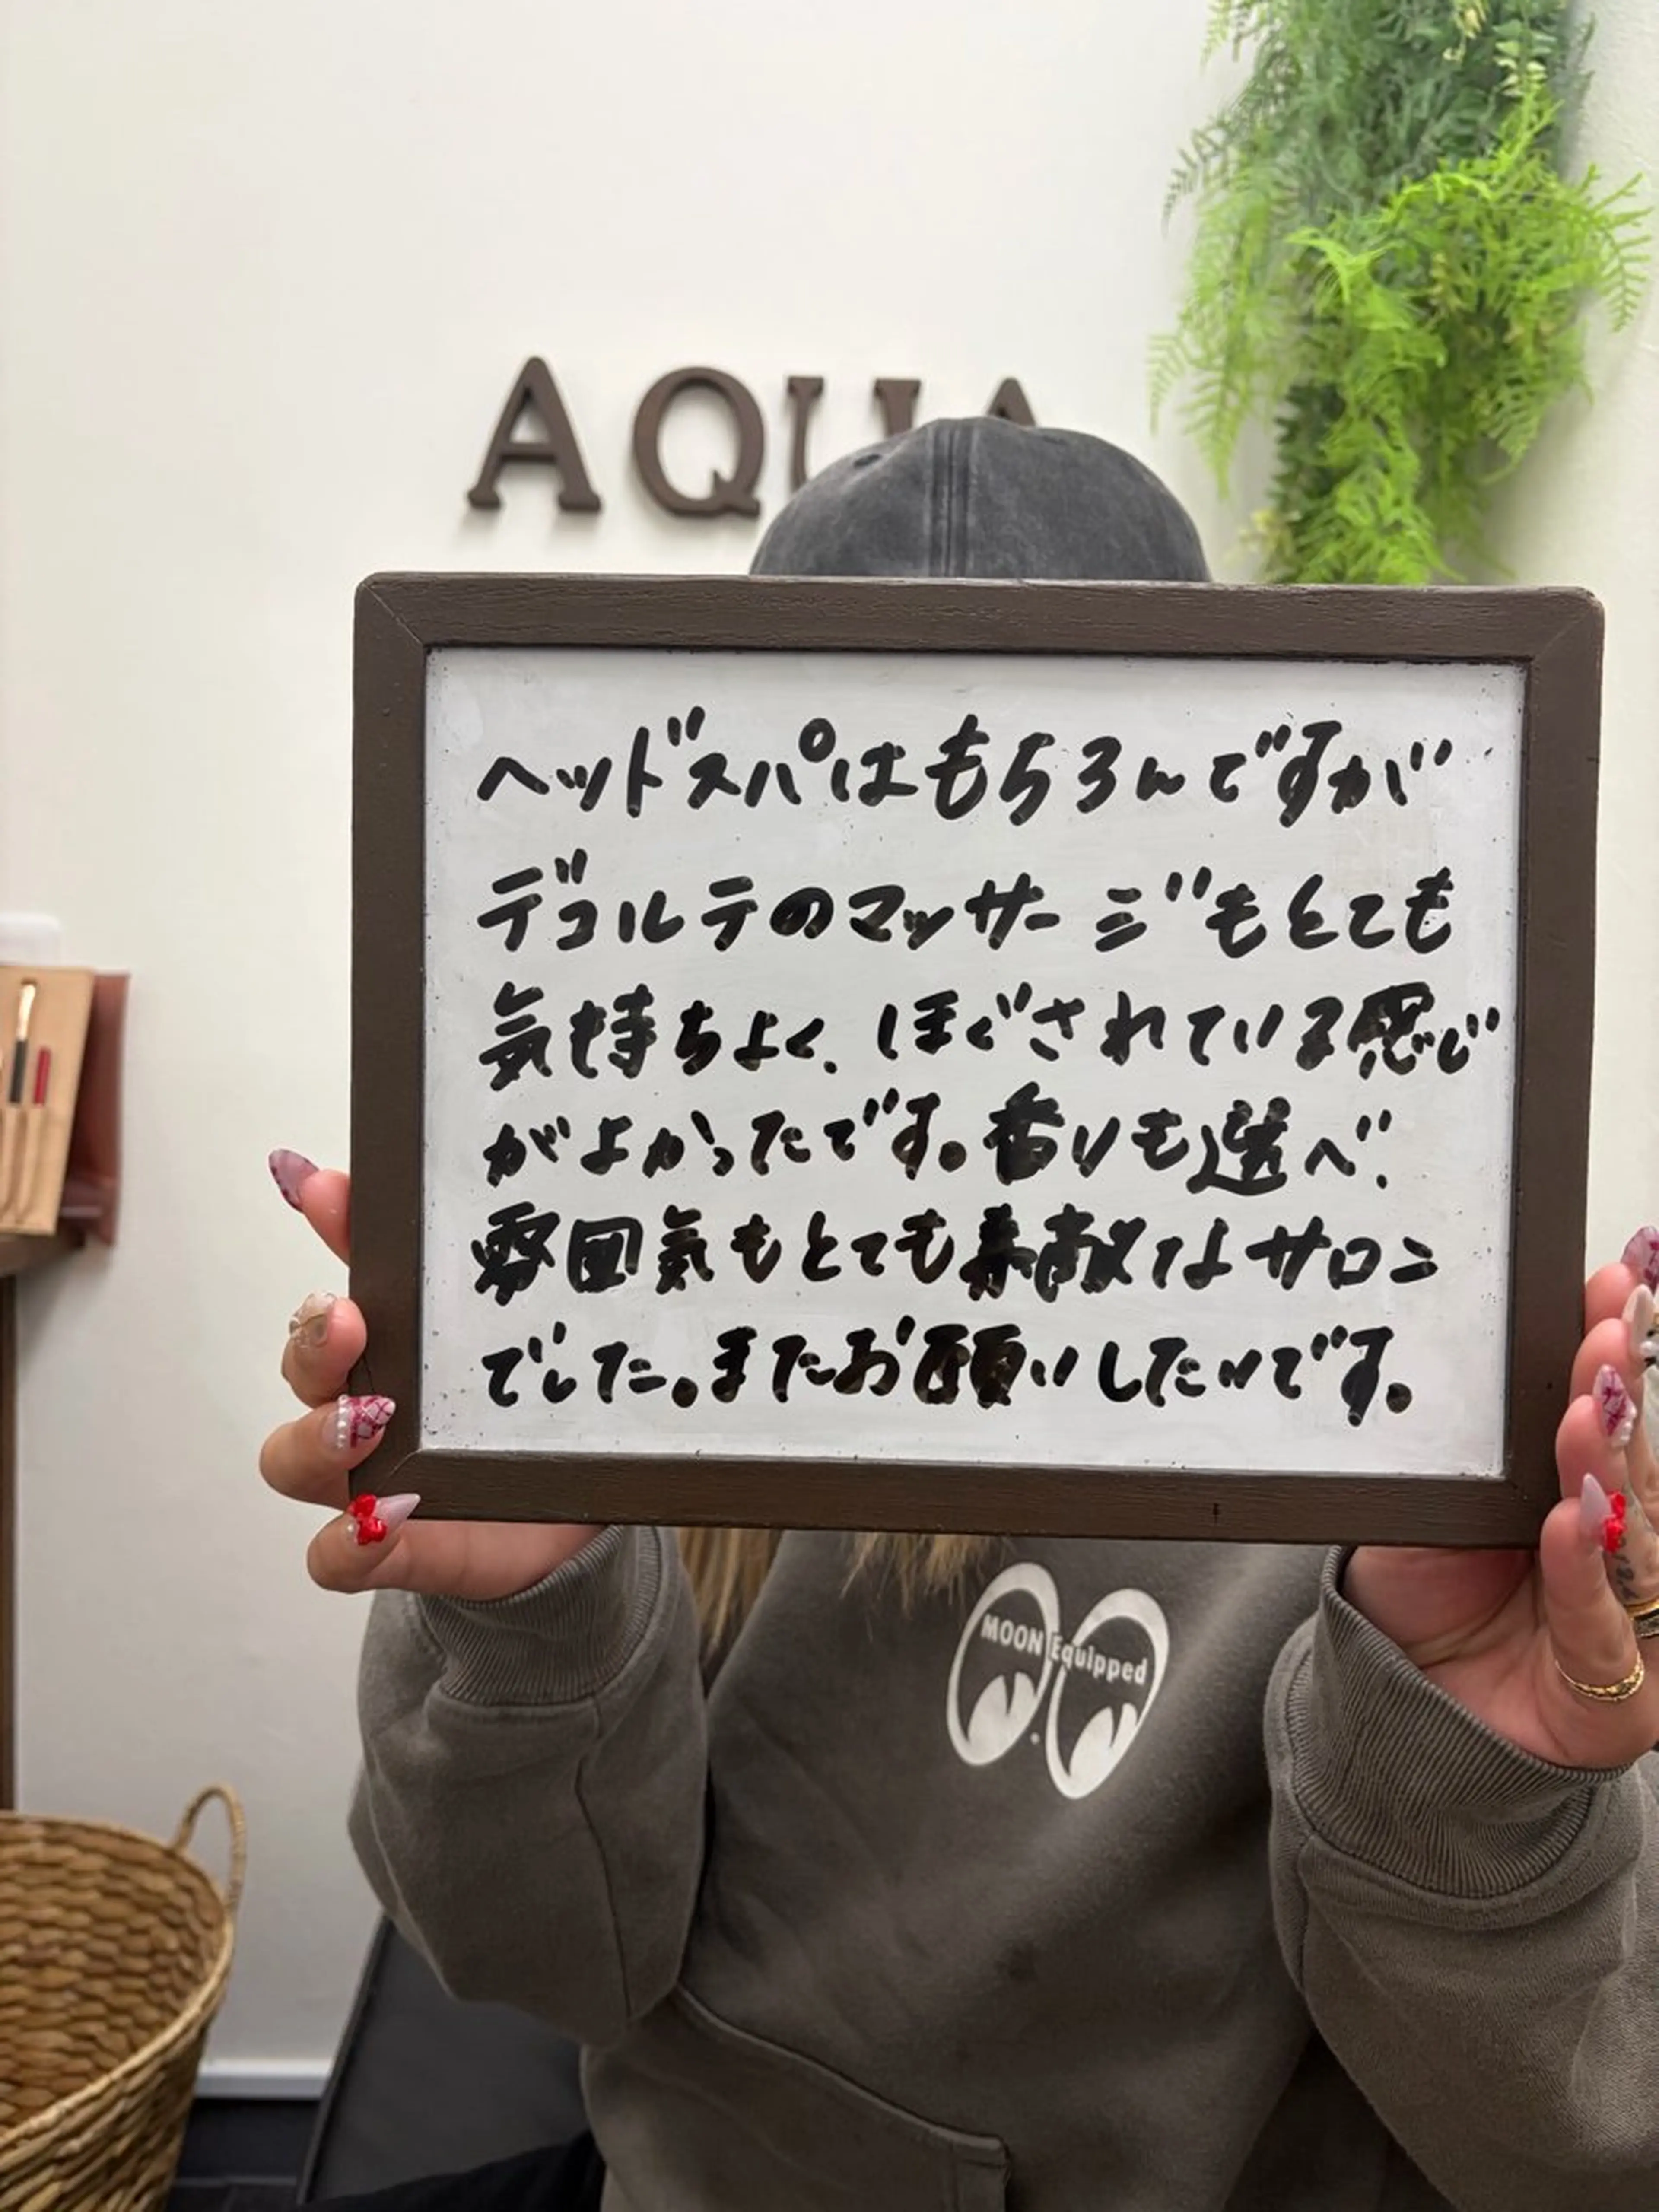 AQUA
ヘッドスパはもちろんですが
デコルテのマッサージもとても
気持ちよく、ほぐされている感じ
がよかったです。香りも選べ、
雰囲気もとても素敵なサロン
でした。またお願いしたいです。
MOON Equipped